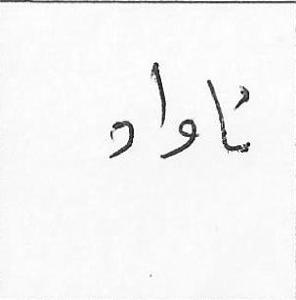 ناواد